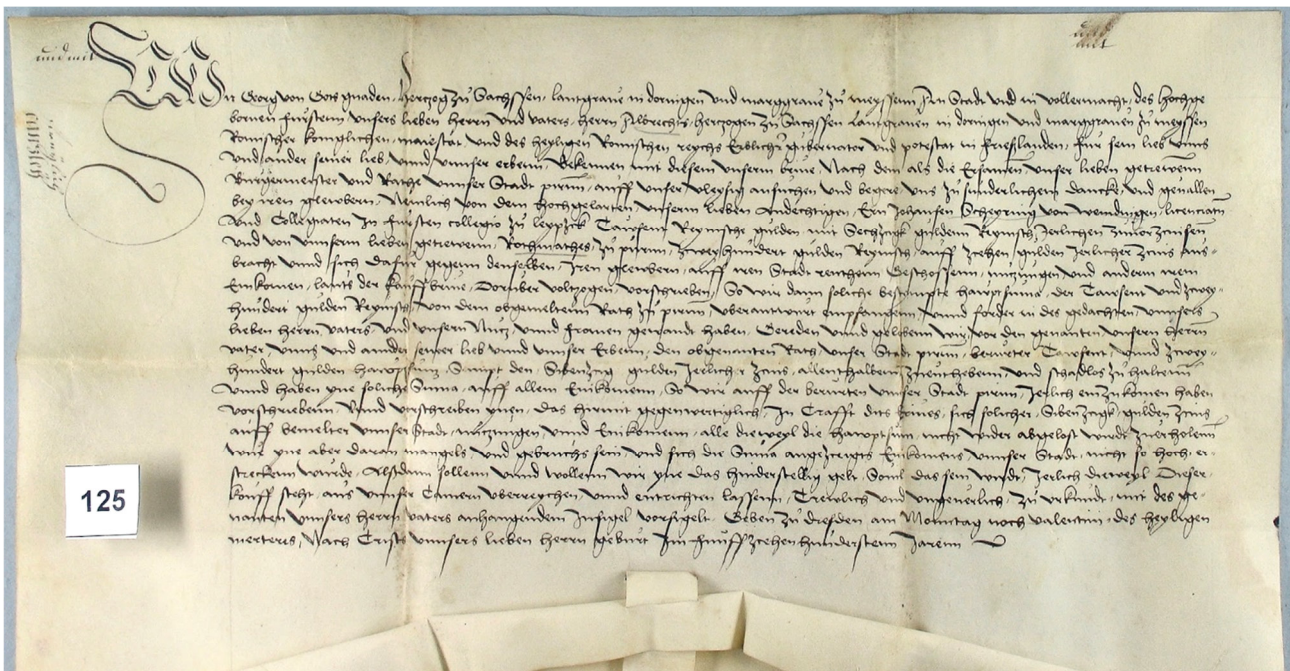 Wir Georg von Gots gnaden, Hertzog zu Sachssen, lantgraue in doringen vnd marggraue zu meyssenn, In Stadt vnd in vollermacht, des hochge
bornen fursten vnsers lieben herrnn vnd vaters, herrn Albrechts, hertzogen zu Sachssen Lantgrauen in doringen vnd marggrauen zu meyssen
Romischer koniglichen maiestat, vnd des heyligen Romischen reychs Erblichs gubernator vnd potestat in frieszlanden, fur sein lieb vnns
vnd ander seiner lieb vnnd vnnser erbenn, Bekennen mit diesem vnserm briue, Nach dem als die Ersamen vnser lieben getrewenn
Burgermeister vnd Rathe vnnser Stadt pirnn, auff vnser vleysig ansuchen vnd begere vns zu sunderlichem dancke vnd geuallen
bey iren glewbern, Nemlich von dem hochgelarten, vnserm lieben Andechtigen, Ern Johansen Scheyring von Wendingen, licenciaten
vnd Collegiaten In fursten collegio zu leyptzick Tawsent Reynische gulden, mit Sechtzigk guldenn Reynisch Jerlichen zinsen
vnd von vnnserm lieben getrewenn, Rochmathes, zu pirnn, zweyhundert gulden Reynisch, auff zcehen gulden Jerlicher zcins aus-
bracht vnnd sich dafur gegenn denselben, Iren glewbern, auff iren Stadt renthenn Geschossenn, nutzungen vnd anderm irem
Einkomen, lauts der kauffbriue, Doruber voltzogen, vorschrieben, So wir dann soliche bestympte hauptsuma, der Tawsent vnd zwey-
hundert gulden Reynisch, von dem obgemeltenn Rath zu pirnn, vberantwurt empfangenn, vnnd forder in des gedachten vnnsers
lieben herrnn vaters, vnd vnsern Nutz, vnnd fromen gewandt haben, Gereden vnnd geloben wir, vor den genanten vnsern herrn
vater, vnns vnd ander seiner lieb vnnd vnnser Erbenn, den obgenanten Rath, vnser Stadt pirnn, berurter Tawsent, vnnd zwey-
hundert gulden hawptsum, Sampt den Sibentzig gulden Jerlicher zcins, allenthalben zuenthebenn, vnd schadlos zu haltenn
vnnd haben yne soliche Suma, auff allem Einkomenn, So wir auff der berurten vnser Stadt pirnn, Jerlich einzukomen haben
vorschriebenn, Vnnd vorschreiben ynen, das hirmit gegenwertiglich, In Crafft dits briues, sich solicher, Sibentzigk gulden zcins
auff bemelter vnnser Stadt, nutzungen, vnnd Einkomenn, alle dieweyl die hawptsum, nicht wider abgelost wurdt, zuerholenn
wue yne aber daran mangels vnd gebruchs sein vnd sich die Suma angezceigts Einkomens vnnser Stadt, nicht so hoch er-
strecken wurde, Alsdann sollenn vnnd wollenn wir yne das hinderstellig gelt, Souil das sein wurdt, Jerlich dieweyl Dieser
kouff steht, aus vnnser Camern vberreychen vnnd entrichten lassenn, Trewlich vnd vngeuerlich, Zu vrkundt, mit des ge-
nanten vnnsers herrn vaters anhangendem Insigel vorsigelt, Geben zu dresden am Monntag noch valentini, des heyligen
merterers, Nach Cristi vnnsers lieben herrn geburt Im funffzcehenhunderstenn Jarenn
125